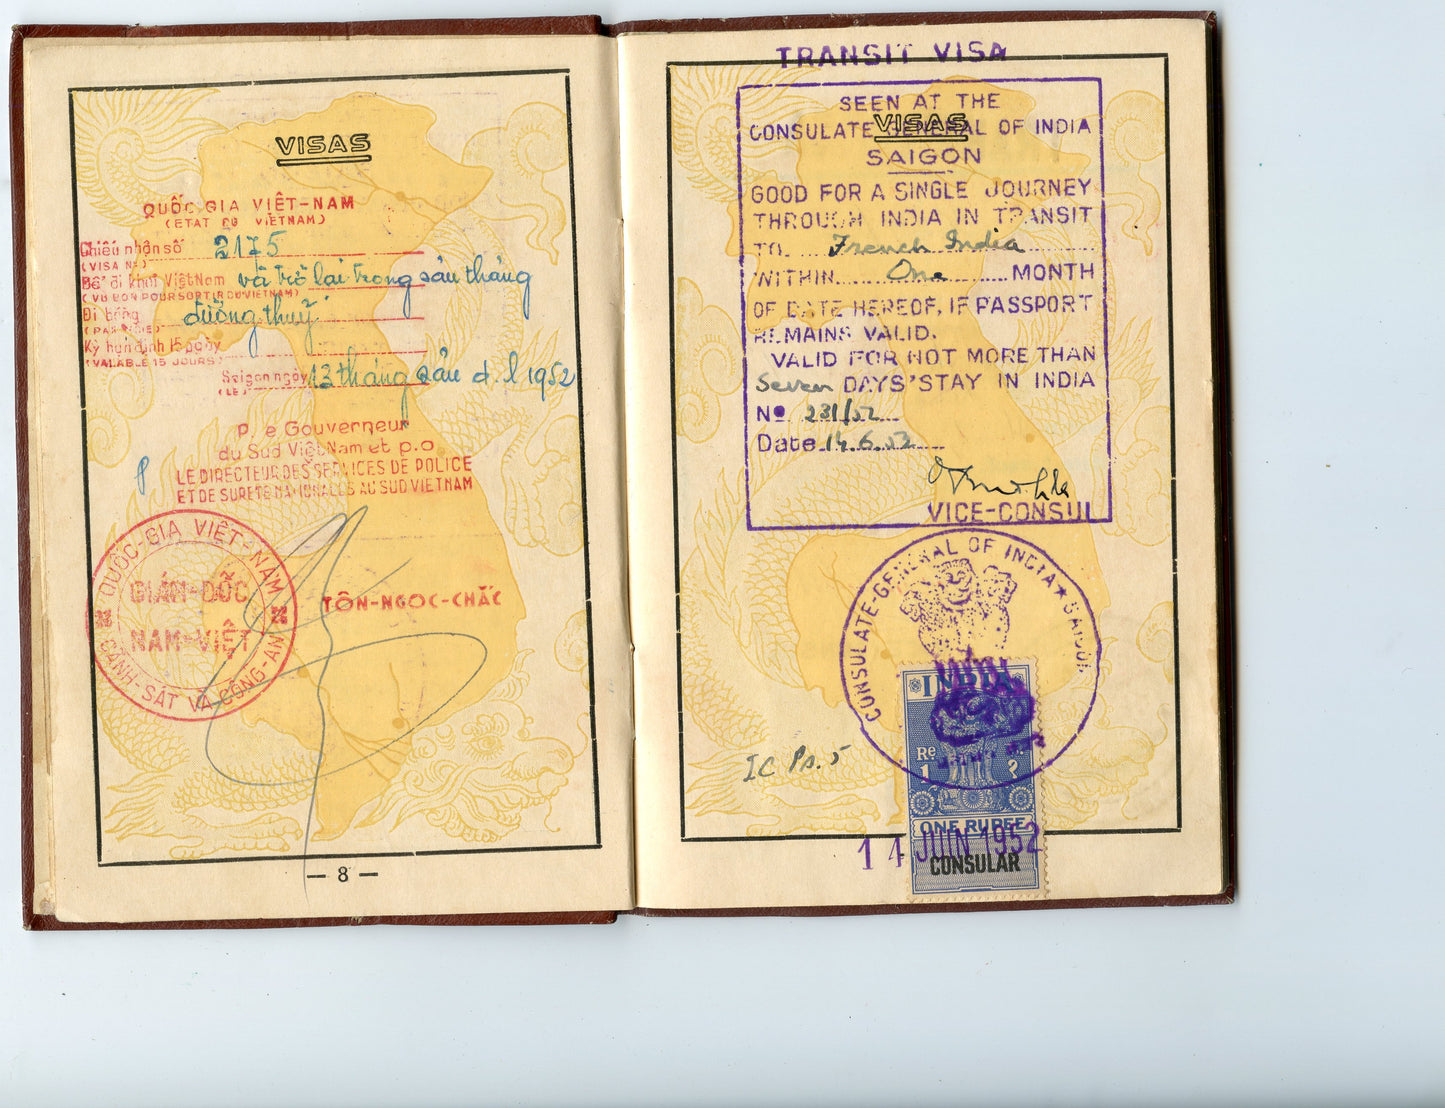 VISAS
QUỐC GIA VIỆT-NAM
(ETAT DU VIETNAM)
Chiếu nhận số 2175
(VISA No)
Để đi khỏi Việt Nam và trở lại trong sáu tháng
(VU BON POUR SORTIR DU VIETNAM)
Đi bằng đường thuỷ
Kỳ hạn định 15 ngày
(VALABLE 15 JOURS)
Saigon ngày 13 tháng sáu d.l 1952
(LE)
P. le Gouverneur
du Sud Việt Nam et p.o
LE DIRECTEUR DES SERVICES DE POLICE
ET DE SURETE NATIONALES AU SUD VIETNAM
QUỐC-GIA VIỆT-NAM
GIÁM-ĐỐC
NAM-VIỆT
CẢNH-SÁT VÀ CÔNG-AN
TÔN-NGỌC-CHẮC
— 8 —
TRANSIT VISA
SEEN AT THE
VISAS
CONSULATE GENERAL OF INDIA
SAIGON
GOOD FOR A SINGLE JOURNEY
THROUGH INDIA IN TRANSIT
TO French India
WITHIN One MONTH
OF DATE HEREOF, IF PASSPORT
REMAINS VALID.
VALID FOR NOT MORE THAN
Seven DAYS' STAY IN INDIA
No 231/52
Date 14.6.52
VICE-CONSUL
CONSULATE-GENERAL OF INDIA ★ SAIGON
INDIA
Re 1 १
ONE RUPEE
CONSULAR
IC Ps. 5
14 JUIN 1952